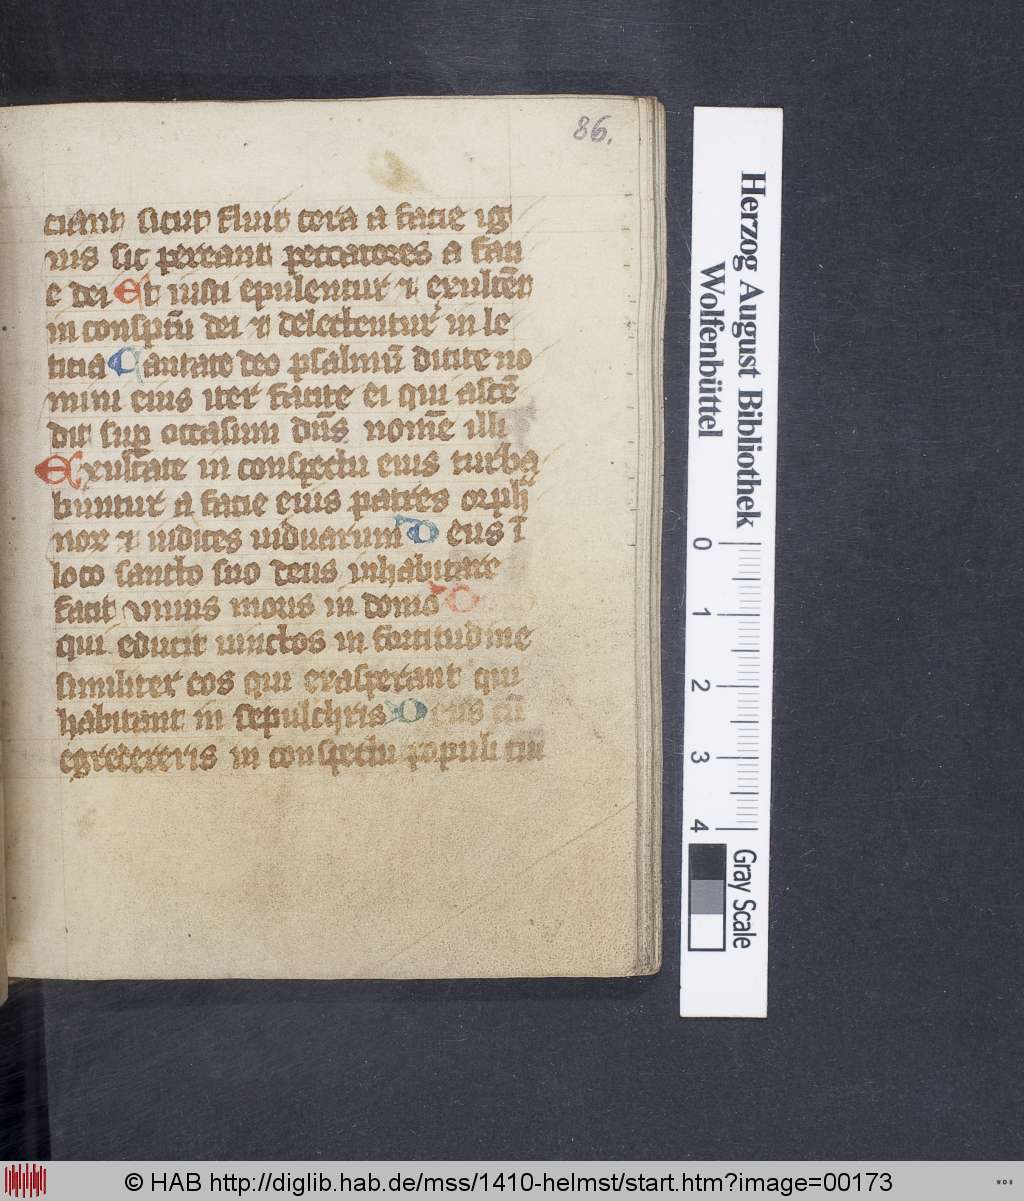 86.
ciant sicut fluit cera a facie ig
nis sic pereant peccatores a faci
e dei Et iusti epulentur ⁊ exultēt
in conspcū dei ⁊ delectentur in le
titia Cantate deo psalmū dicite no
mini eius iter facite ei qui ascē
dit sup occasum dn̄s nomē illi
Exultate in conspectu eius turba
buntur a facie eius patres orpha
nor ⁊ iudices uiduarum Deus ī
loco sancto suo deus inhabitare
facit vnius moris in domo
qui educit uinctos in fortitudine
similiter eos qui exasperant qui
habitant in sepulchris Deus cū
egredereris in conspectu populi tui
Herzog August Bibliothek
Wolfenbüttel
0 1 2 3 4
Gray Scale
© HAB http://diglib.hab.de/mss/1410-helmst/start.htm?image=00173